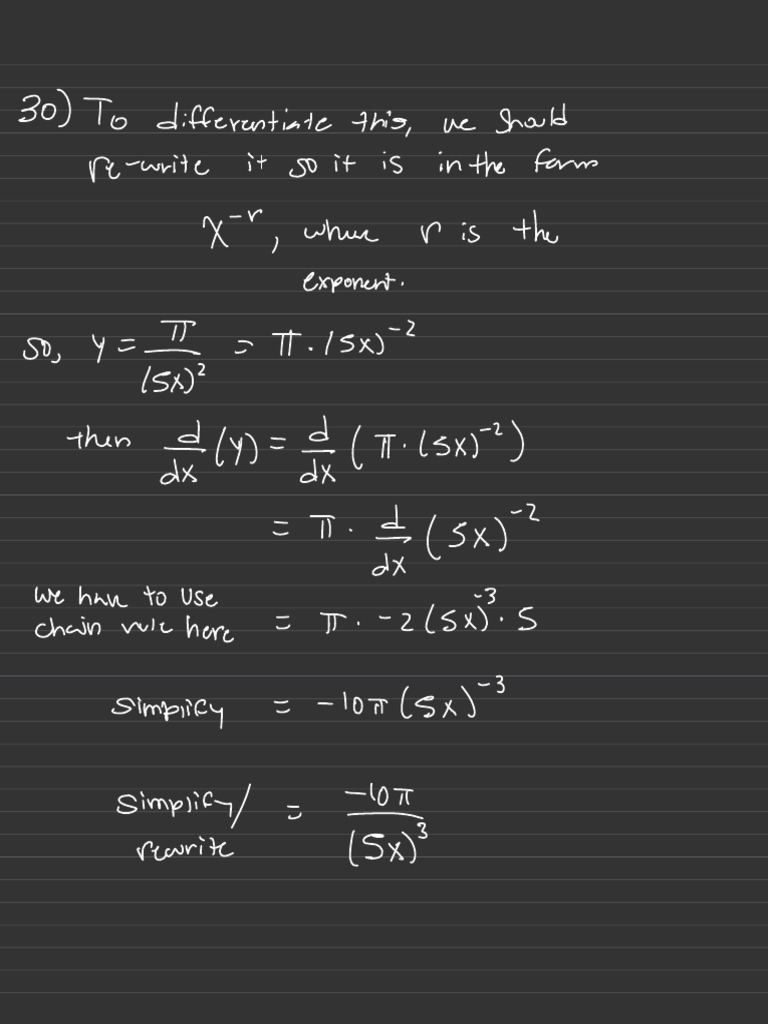 30) To differentiate this, we should
re-write it so it is in the form
x⁻ʳ, where r is the
exponent.
so, y = π/(5x)² = π · (5x)⁻²
then d/dx (y) = d/dx (π · (5x)⁻²)
= π · d/dx (5x)⁻²
we have to use
chain rule here = π · -2(5x)⁻³ · 5
simplify = -10π(5x)⁻³
simplify/
rewrite = -10π/(5x)³